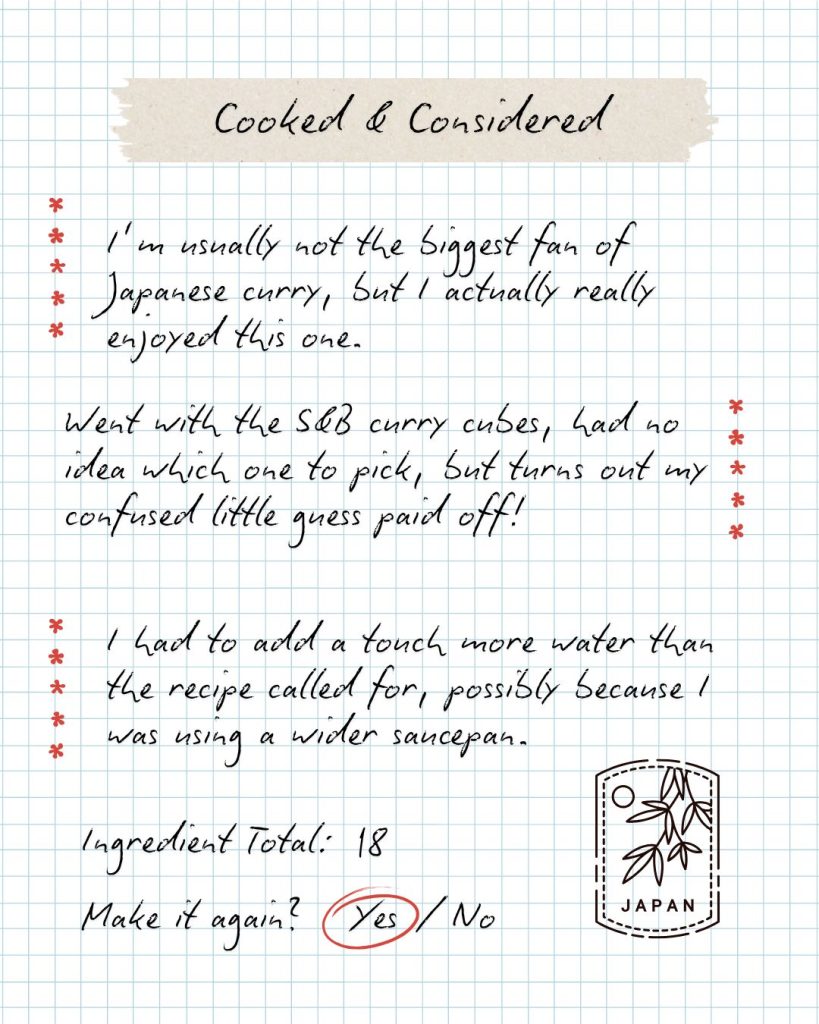 Cooked & Considered
I'm usually not the biggest fan of
Japanese curry, but I actually really
enjoyed this one.
Went with the S&B curry cubes, had no
idea which one to pick, but turns out my
confused little guess paid off!
I had to add a touch more water than
the recipe called for, possibly because I
was using a wider saucepan.
Ingredient Total: 18
Make it again? Yes / No
JAPAN